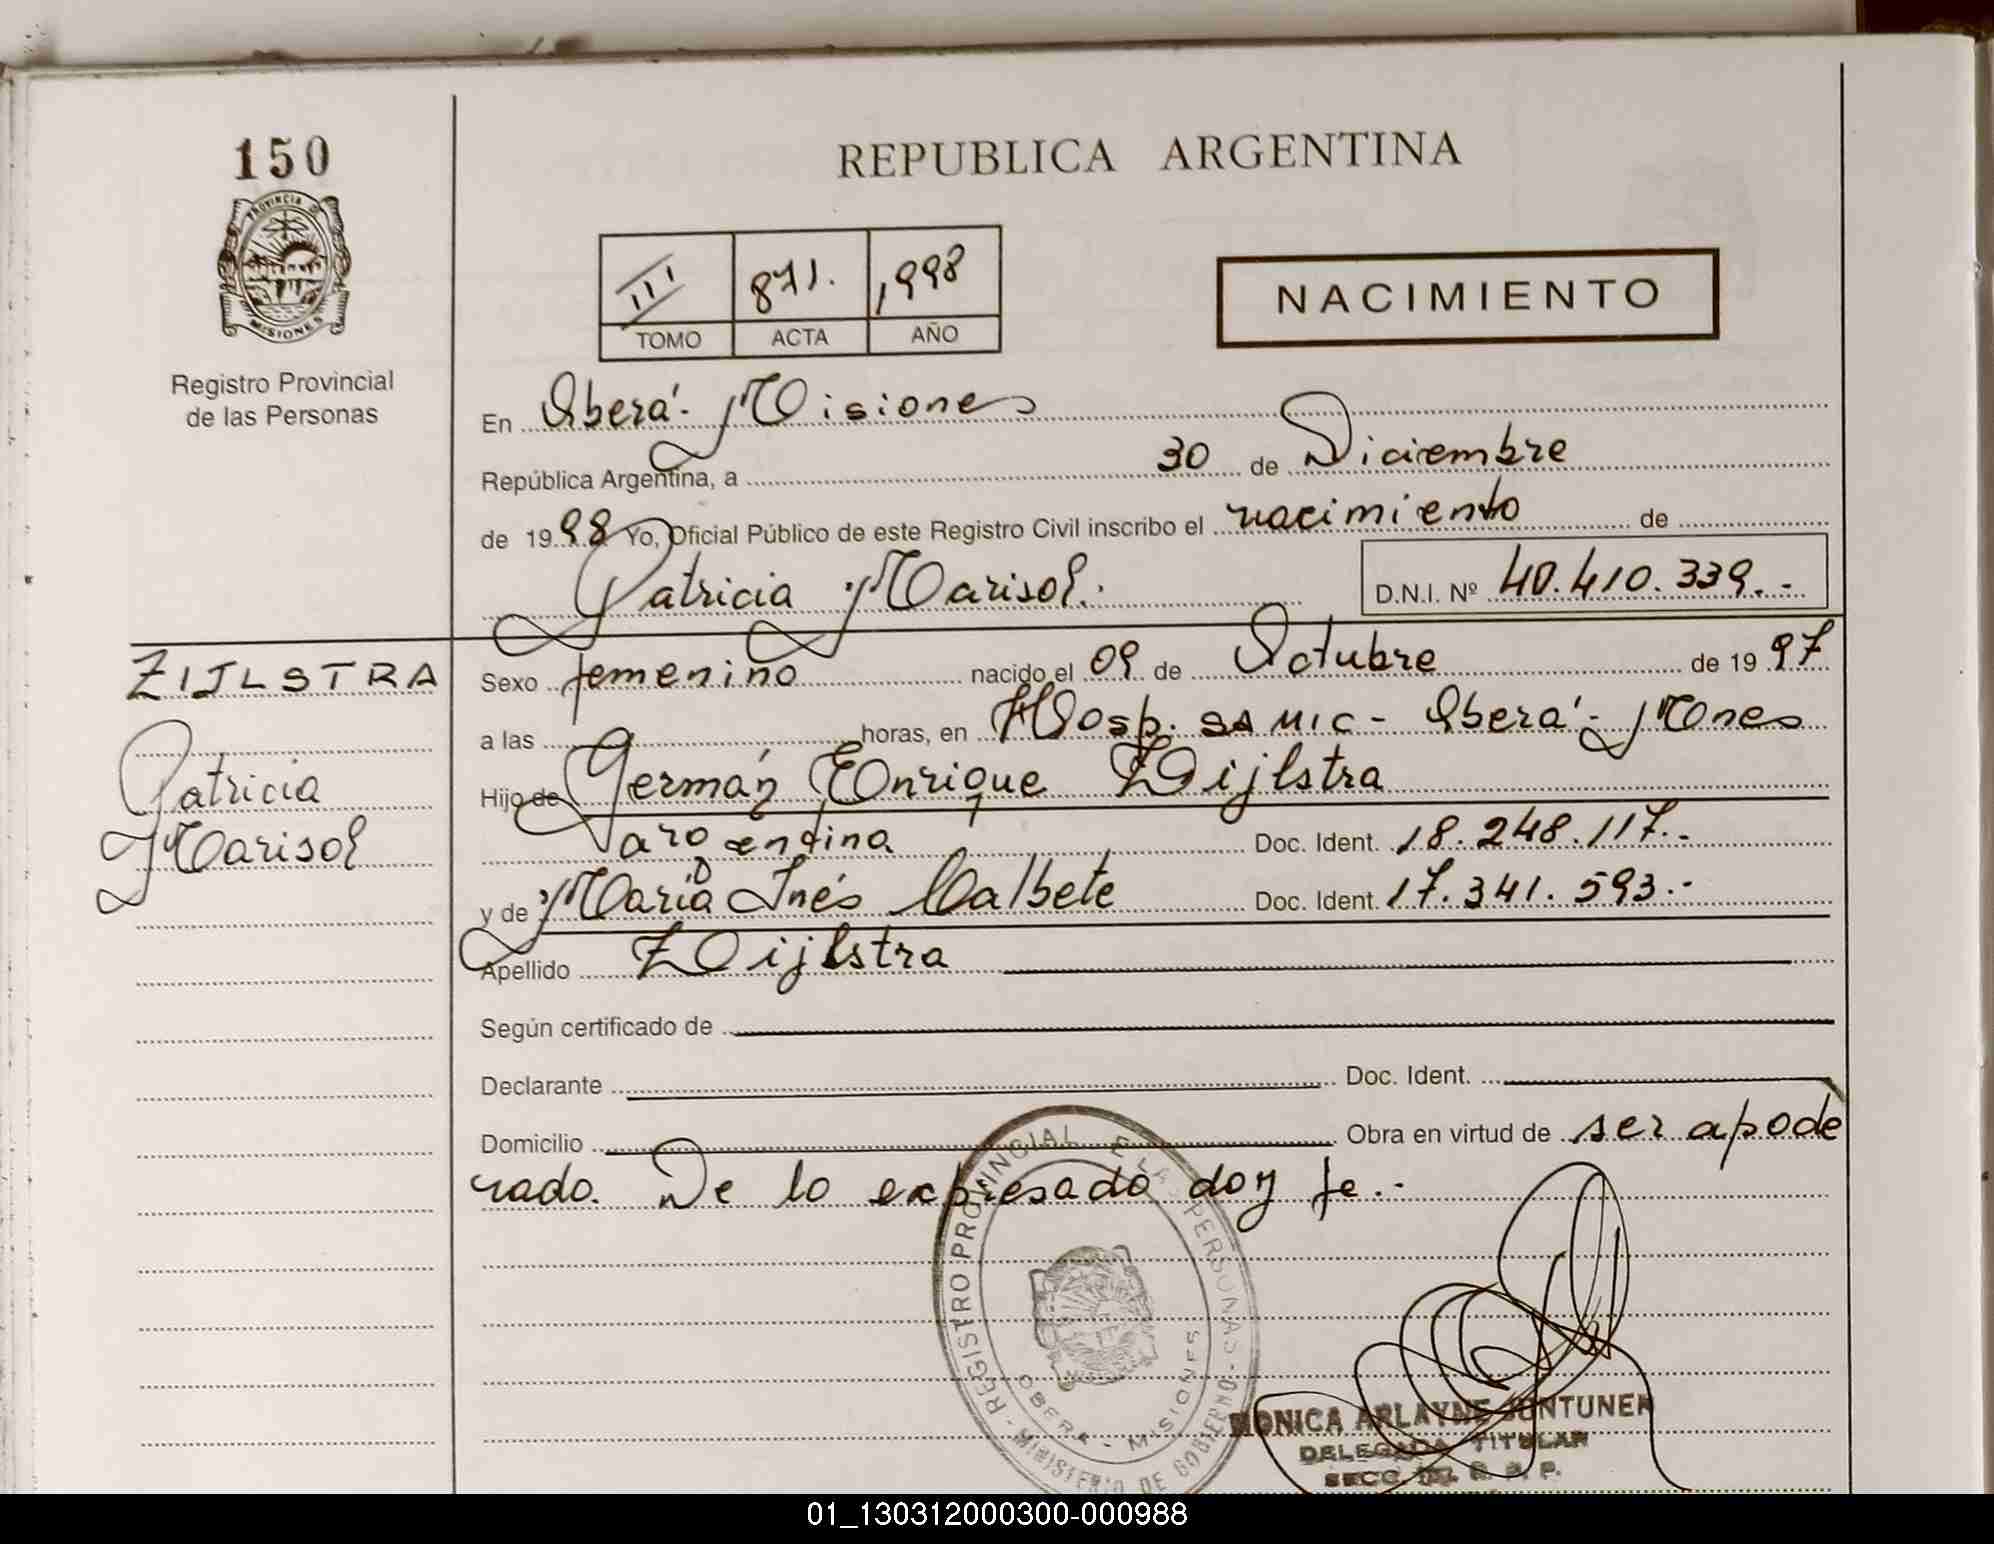 150
PROVINCIA D
MISIONES
Registro Provincial
de las Personas
REPUBLICA ARGENTINA
III 871. 1998
TOMO ACTA AÑO
NACIMIENTO
En Oberá - Misiones
República Argentina, a 30 de Diciembre
de 1998 Yo, Oficial Público de este Registro Civil inscribo el nacimiento de
Patricia Marisol. D.N.I. Nº 40.410.339.-
ZIJLSTRA
Patricia
Marisol
Sexo femenino nacido el 09 de Octubre de 1997
a las horas, en Hosp. SAMIC - Oberá - Mnes
Hijo de Germán Enrique Zijlstra
argentina Doc. Ident. 18.248.117.-
y de María Inés Calbete Doc. Ident. 17.341.593.-
Apellido Zijlstra
Según certificado de
Declarante Doc. Ident.
Domicilio Obra en virtud de ser apode
rado. De lo expresado doy fe.-
REGISTRO PROVINCIAL E LAS PERSONAS - MINISTERIO DE GOBIERNO -
OBERA - MISIONES
MONICA ARLAYNE JUNTUNEN
DELEGADA TITULAR
SECC. R. P. P.
01_130312000300-000988